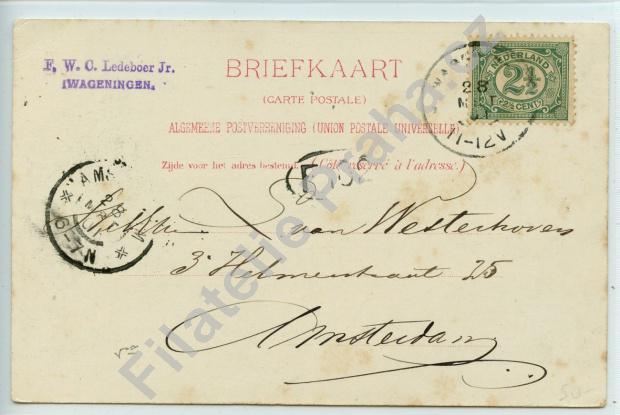 F. W. C. Ledeboer Jr.
WAGENINGEN.
BRIEFKAART
(CARTE POSTALE)
ALGEMEENE POSTVEREENIGING (UNION POSTALE UNIVERSELLE)
Zijde voor het adres bestemd. (Côté réservé à l'adresse.)
NEDERLAND
2½
(2½ CENT)
28
11-12V
AMS
6-7N
van Westerhoven
3e Helmerstraat 25
Amsterdam
50-
Filatelie Praha.cz